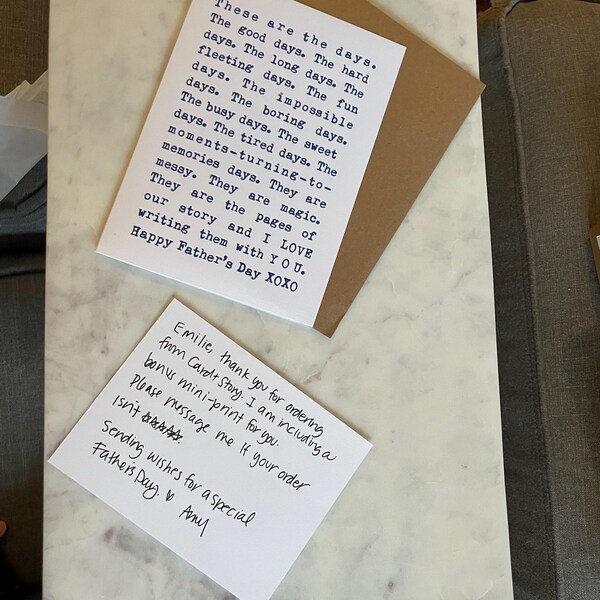 These are the days.
The good days. The hard
days. The long days. The
fleeting days. The fun
days. The impossible
days. The boring days.
The busy days. The sweet
days. The tired days. The
moments-turning-to-
memories days. They are
messy. They are magic.
They are the pages of
our story and I LOVE
writing them with Y O U.
Happy Father's Day XOXO
Emilie, thank you for ordering
from Card + Story. I am including a
bonus mini-print for you.
Please message me if your order
isn't
Sending wishes for a special
Father's Day. ♡ Amy